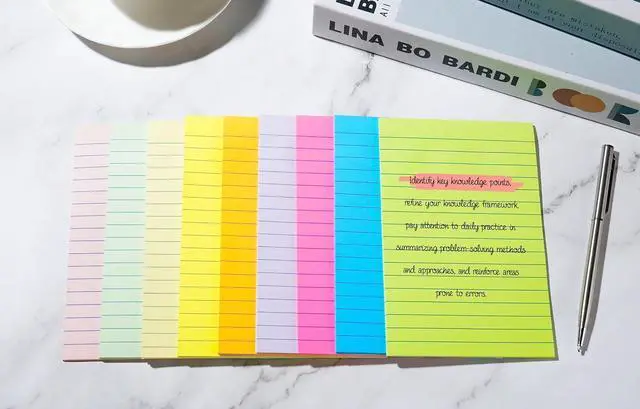 LINA BO BARDI
Identify key knowledge points,
refine your knowledge framework,
pay attention to daily practice in
summarizing problem-solving methods
and approaches, and reinforce areas
prone to errors.